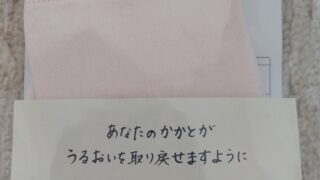 あなたのかかとが
うるおいを取り戻せますように